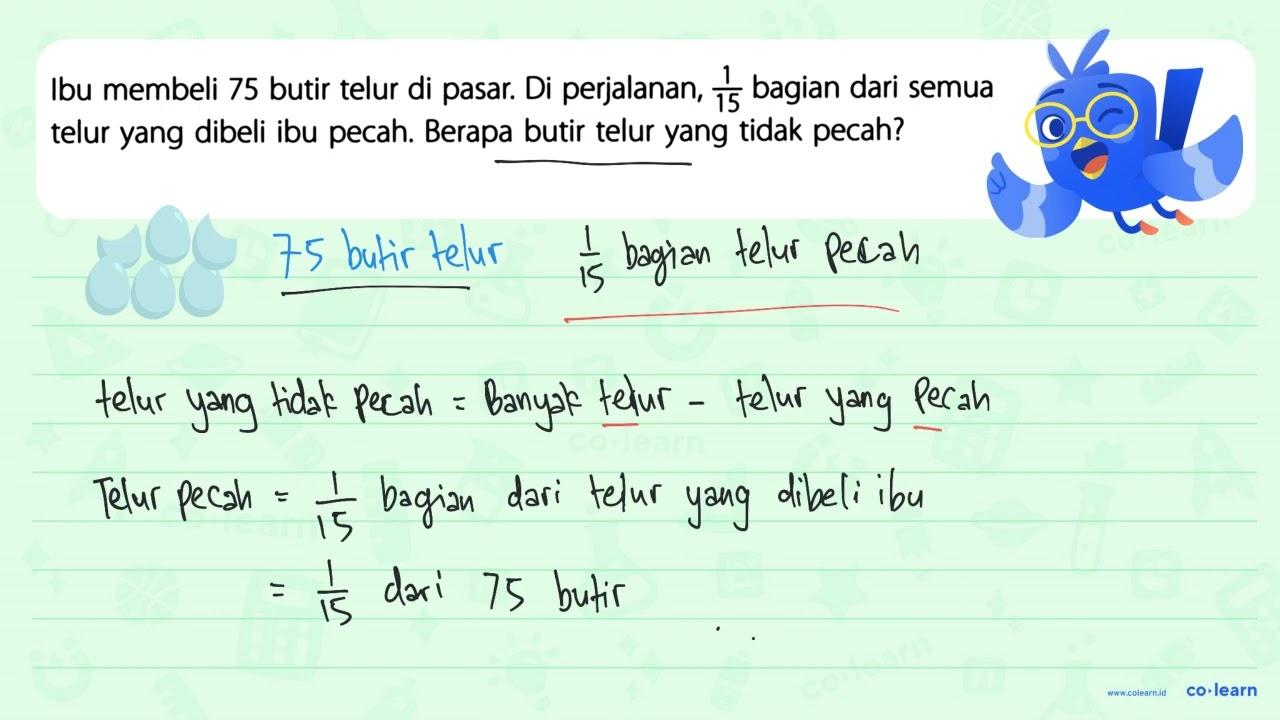 Ibu membeli 75 butir telur di pasar. Di perjalanan, 1/15 bagian dari semua
telur yang dibeli ibu pecah. Berapa butir telur yang tidak pecah?
75 butir telur 1/15 bagian telur pecah
telur yang tidak pecah = Banyak telur - telur yang pecah
Telur pecah = 1/15 bagian dari telur yang dibeli ibu
= 1/15 dari 75 butir
co·learn
co·learn
co·learn
co·learn
www.colearn.id co·learn